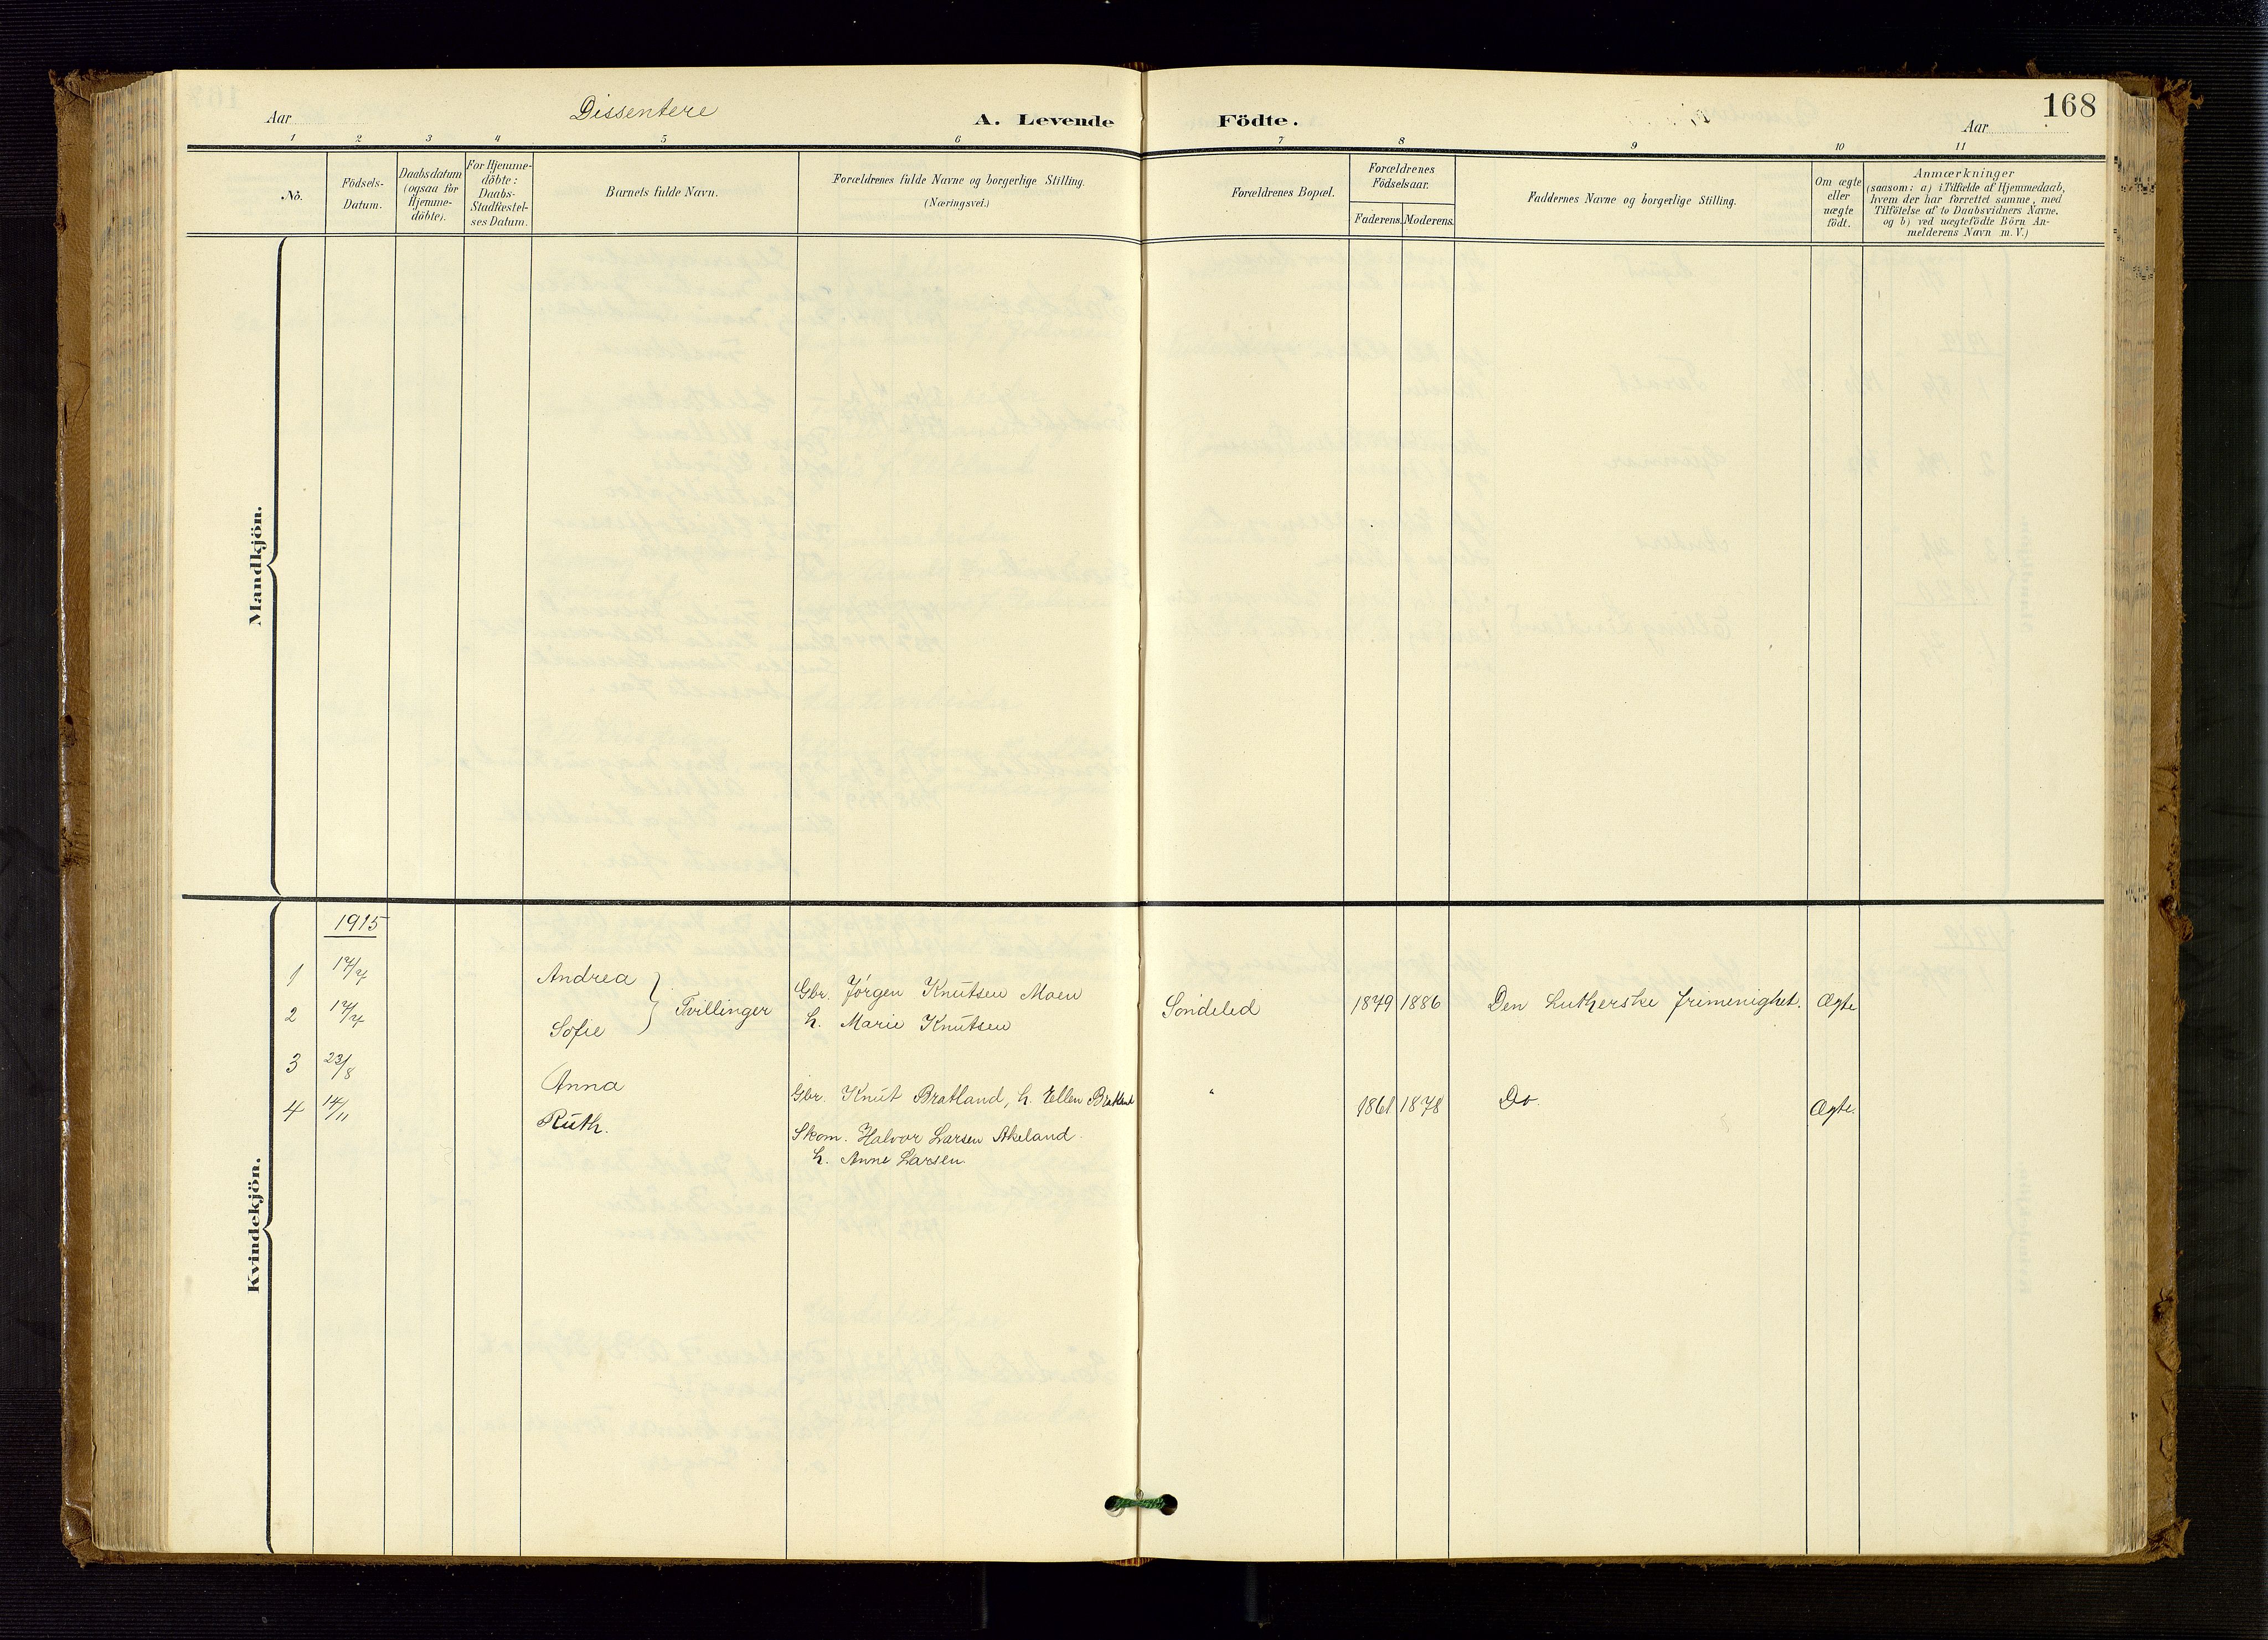 168
Aar
Dissentere
A. Levende Födte.
Aar
1 2 3 4 5 6 7 8 9 10 11
No.
Födsels-
Datum.
Daabsdatum
(ogsaa for
Hjemme-
döbte).
For Hjemme-
döbte:
Daabs-
Stadfæstel-
ses Datum.
Barnets fulde Navn.
Forældrenes fulde Navne og borgerlige Stilling.
(Næringsvei.)
Forældrenes Bopæl.
Forældrenes
Födselsaar.
Faderens. Moderens.
Faddernes Navne og borgerlige Stilling.
Om ægte
eller
uægte
födt.
Anmærkninger
(saasom: a) i Tilfælde af Hjemmedaab,
hvem der har forrettet samme, med
Tilföielse af to Daabsvidners Navne,
og b) ved uægtefödte Börn An-
melderens Navn m. V.)
Mandkjön.
Kvindekjön.
1915
1 17/4 Andrea
2 17/4 Sofie
Tvillinger
Gbr. Jørgen Knutsen Moen
h. Marie Knutsen
Söndeled 1879 1886 Den Lutherske frimenighet. Ægte
3 23/8 Anna Gbr. Knut Bratland, h. Ellen Bratland " 1861 1878 Do. Ægte.
4 14/11 Ruth. Skom. Halvor Larsen Akeland.
h. Anne Larsen.